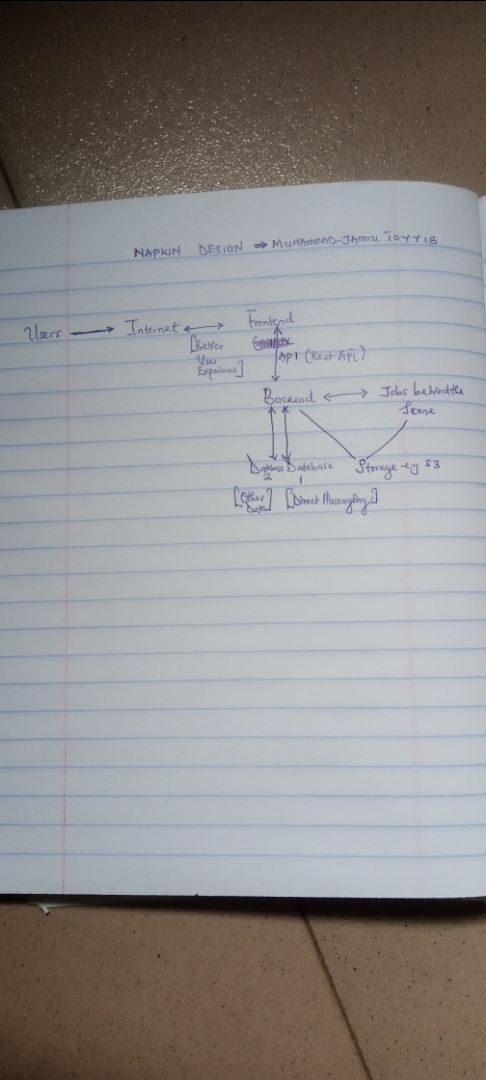 NAPKIN DESIGN ⇒ MUHAMMAD-JAMIU TOYYIB
Users → Internet ↔ Frontend
[Better
User
Experience]
API (Rest API)
Backend ↔ Jobs behind the
Scene
Database
2
Database
1
Storage eg S3
[Other
Data]
[Direct Messaging]